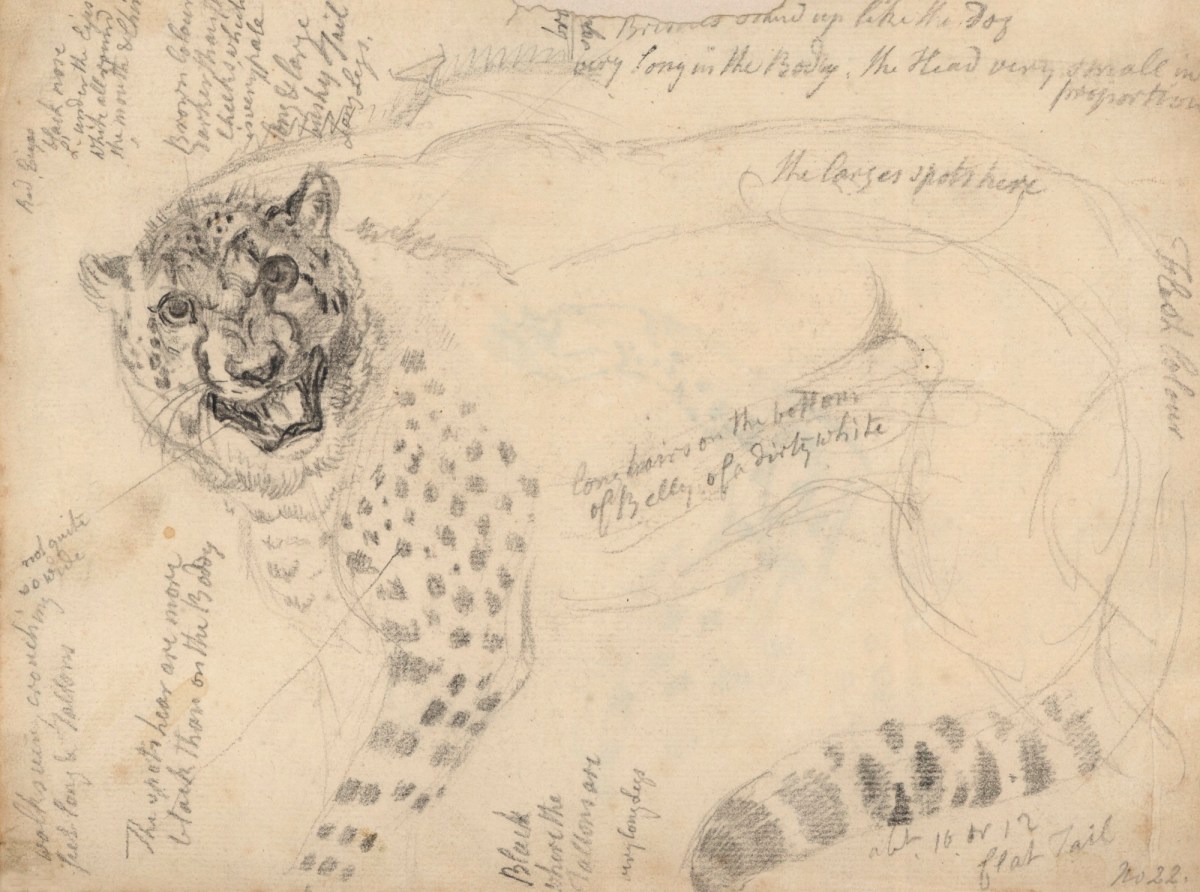 Brisels stand up like the Dog
very long in the Body, the Head very small in
proportion
Red Eyes
dark nose
& under the Eyes
White all round
the mouth & Chin
Brown Colour
darker than if
Cheeks which
is very pale
long & large
bushy Tail
Long Legs.
the larges spots here
Flesh Colour
long hairs on the bottom
of Belly of a dirty white
not quite
so
walks uen crouching
feet long & Tallons
The spots hear are more
black than on the Body
Black
where the
Tallons are
very long Legs
abt. 10 or 12
flat Tail
No 22.